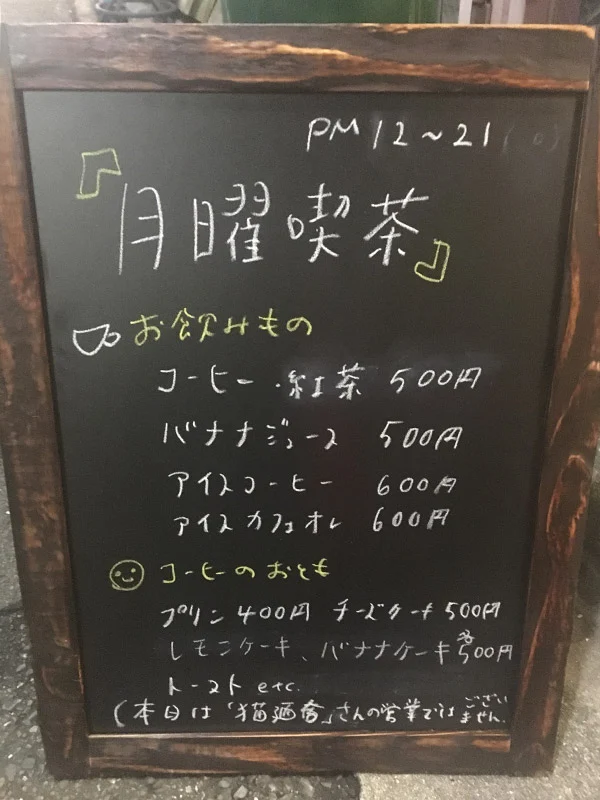 PM 12~21
『月曜喫茶』
お飲みもの
コーヒー・紅茶 500円
バナナジュース 500円
アイスコーヒー 600円
アイスカフェオレ 600円
コーヒーのおとも
プリン 400円 チーズケーキ 500円
レモンケーキ、バナナケーキ 各500円
トースト etc.
(本日は「猫廼舎」さんの営業ではございません。